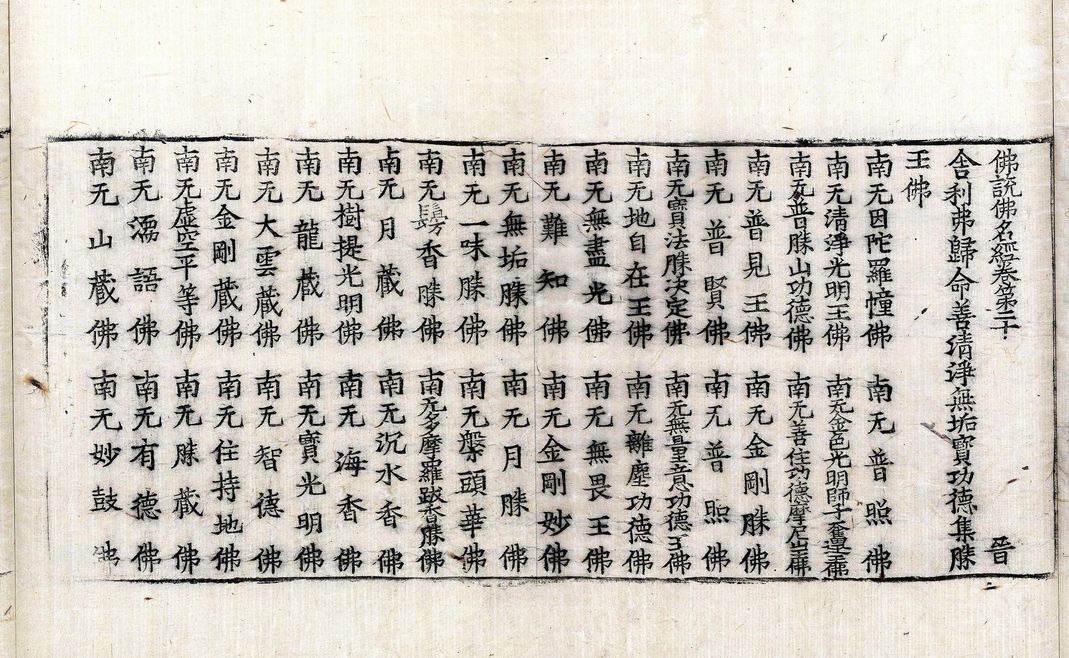 佛說佛名經卷第二十 晉
舍利弗歸命善清淨無垢寶功德集勝
王佛
南无因陀羅幢佛 南无普照佛
南无清淨光明王佛 南无金色光明師子奮迅王佛
南无普勝山功德佛 南无善住功德摩尼山王佛
南无普見王佛 南无金剛勝佛
南无普賢佛 南无普照佛
南无寶法勝决定佛 南无無量意功德王佛
南无地自在王佛 南无離塵功德佛
南无無盡光佛 南无無畏王佛
南无難知佛 南无金剛妙佛
南无無垢勝佛 南无月勝佛
南无一味勝佛 南无槃頭華佛
南无香勝佛 南无多摩羅跋香勝佛
南无月藏佛 南无沉水香佛
南无樹提光明佛 南无海香佛
南无龍藏佛 南无寶光明佛
南无大雲藏佛 南无智德佛
南无金剛藏佛 南无住持地佛
南无虛空平等佛 南无勝藏佛
南无濡語佛 南无有德佛
南无山藏佛 南无妙鼓佛